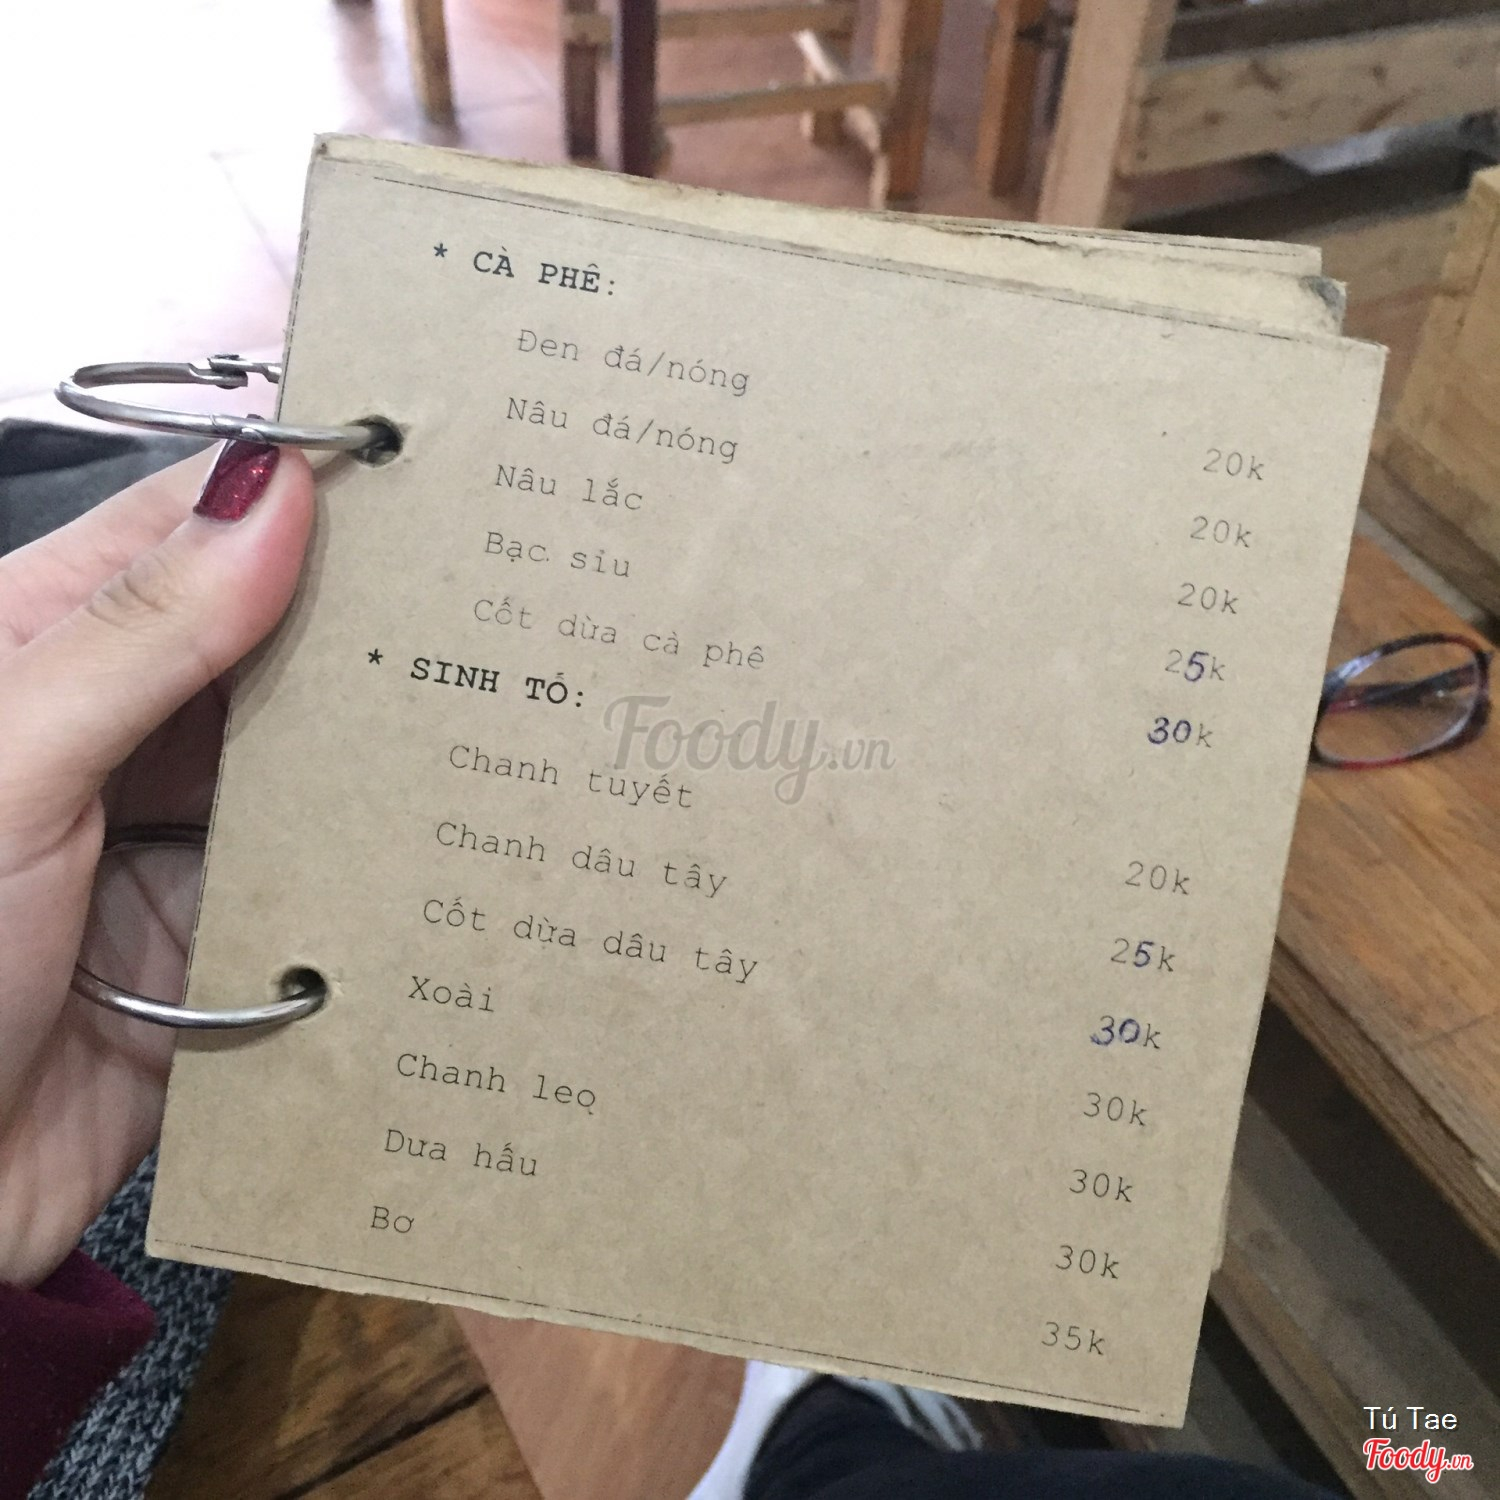 * CÀ PHÊ:
Đen đá/nóng 20k
Nâu đá/nóng 20k
Nâu lắc 20k
Bạc sỉu 25k
Cốt dừa cà phê 30k
* SINH TỐ:
Chanh tuyết 20k
Chanh dâu tây 25k
Cốt dừa dâu tây 30k
Xoài 30k
Chanh leo 30k
Dưa hấu 30k
Bơ 35k
Foody.vn
Tú Tae
Foody.vn